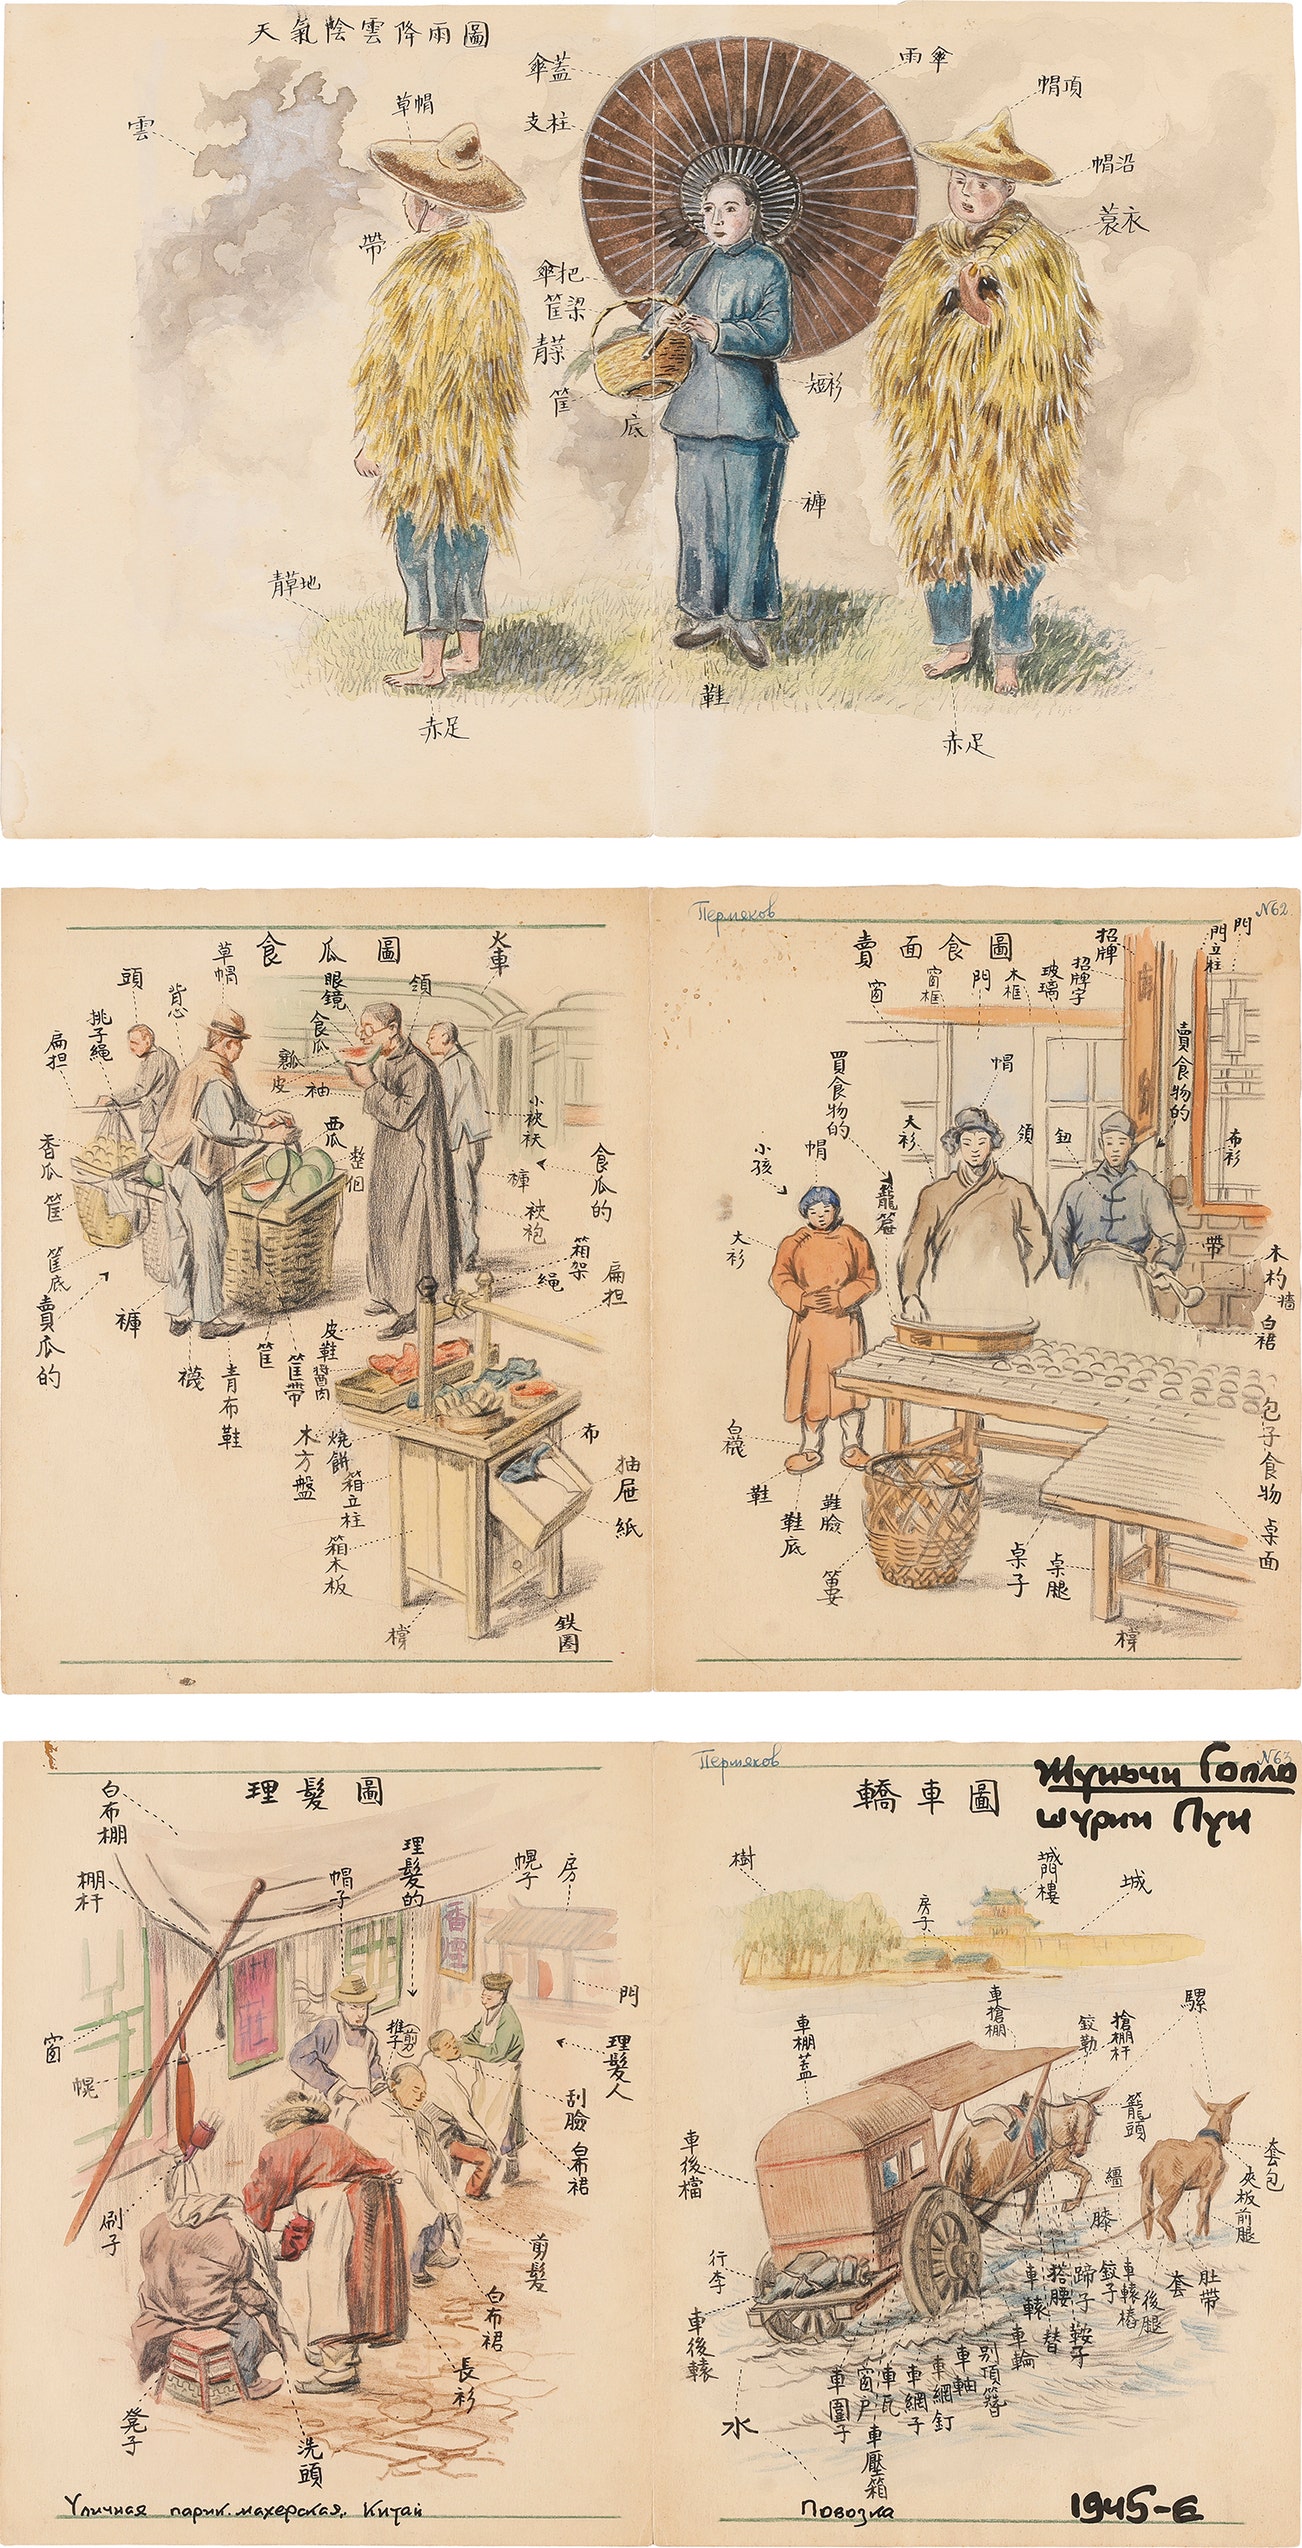 天氣陰雲降雨圖
雲
草帽
帶
傘蓋
支柱
雨傘
帽頂
帽沿
蓑衣
傘把
筐梁
青菜
筐
底
短衫
褲
青草地
鞋
赤足
赤足
食瓜圖
火車
頭
背心
草帽
眼鏡
領
扁担
挑子繩
食瓜
瓤
皮
袖
西瓜
整個
小袂袄
褲
食瓜的
袂袍
香瓜
筐
筐底
賣瓜的
褲
襪
青布鞋
筐
筐帶
皮鞋
醬肉
箱架
繩
扁担
木方盤
燒餅
箱立柱
箱木板
布
抽屉
紙
橕
鉄圈
Пермяков
№62
賣面食圖
窗
窗框
門
木框
玻璃
招牌字
招牌
門立柱
門
買食物的
帽
大衫
領
鈕
賣食物的
布衫
小孩
帽
大衫
帶
木杓
墻
白裙
白襪
鞋
鞋底
鞋臉
包子食物
桌面
桌子
桌腿
橕
理髮圖
白布棚
棚杆
帽子
理髮的
幌子
房
香煙
門
窗
幌
推子(剪)
理髮人
刮臉
白布裙
刷子
剪髮
白布裙
長衫
凳子
洗頭
Уличная парикмахерская. Китай
Пермяков
№63
轎車圖
Жуньчи Гоило
шурин Пуи
樹
城門樓
城
房子
車棚蓋
車搶棚
鉸勒
搶棚杆
騾
籠頭
車後檔
繮
膝
套包
夾板
前腿
行李
車後轅
車轅
搭腰
蹄子
鉸子
車轅樁
後腿
套
肚帶
車輪
替
鞍子
水
車圍子
窗戶
車瓦
車網子
車網釘
車軸
別頂簪
車壓箱
Повозка
1945-е